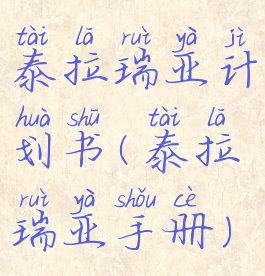 tài lā ruì yà jì
泰拉瑞亚计
huà shū tài lā
划书(泰拉
ruì yà shǒu cè
瑞亚手册)